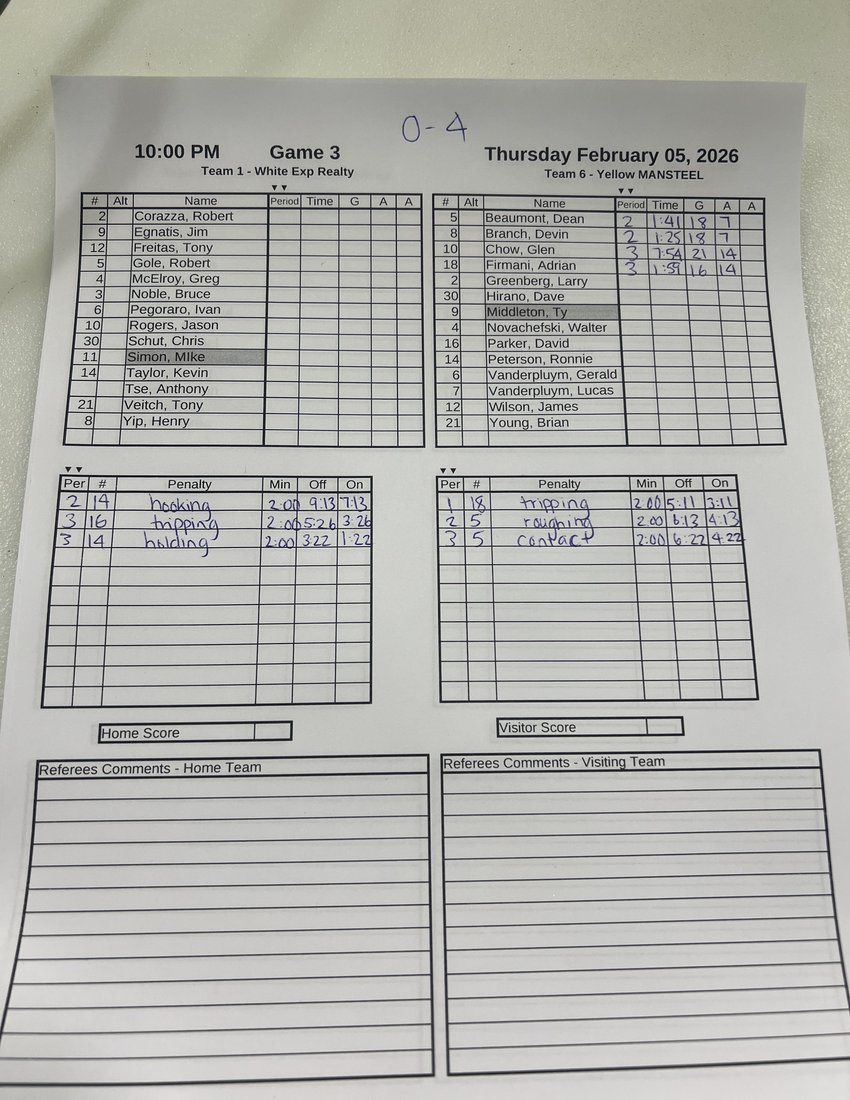 0-4
10:00 PM Game 3 Thursday February 05, 2026
Team 1 - White Exp Realty
Team 6 - Yellow MANSTEEL
# Alt Name Period Time G A A
2 Corazza, Robert
9 Egnatis, Jim
12 Freitas, Tony
5 Gole, Robert
4 McElroy, Greg
3 Noble, Bruce
6 Pegoraro, Ivan
10 Rogers, Jason
30 Schut, Chris
11 Simon, MIke
14 Taylor, Kevin
Tse, Anthony
21 Veitch, Tony
8 Yip, Henry
# Alt Name Period Time G A A
5 Beaumont, Dean 2 1:41 18 7
8 Branch, Devin 2 1:25 18 7
10 Chow, Glen 3 7:54 21 14
18 Firmani, Adrian 3 1:59 16 14
2 Greenberg, Larry
30 Hirano, Dave
9 Middleton, Ty
4 Novachefski, Walter
16 Parker, David
14 Peterson, Ronnie
6 Vanderpluym, Gerald
7 Vanderpluym, Lucas
12 Wilson, James
21 Young, Brian
Per # Penalty Min Off On
2 14 hooking 2:00 9:13 7:13
3 16 tripping 2:00 5:26 3:26
3 14 holding 2:00 3:22 1:22
Per # Penalty Min Off On
1 18 tripping 2:00 5:11 3:11
2 5 roughing 2:00 6:13 4:13
3 5 contact 2:00 6:22 4:22
Home Score
Visitor Score
Referees Comments - Home Team
Referees Comments - Visiting Team